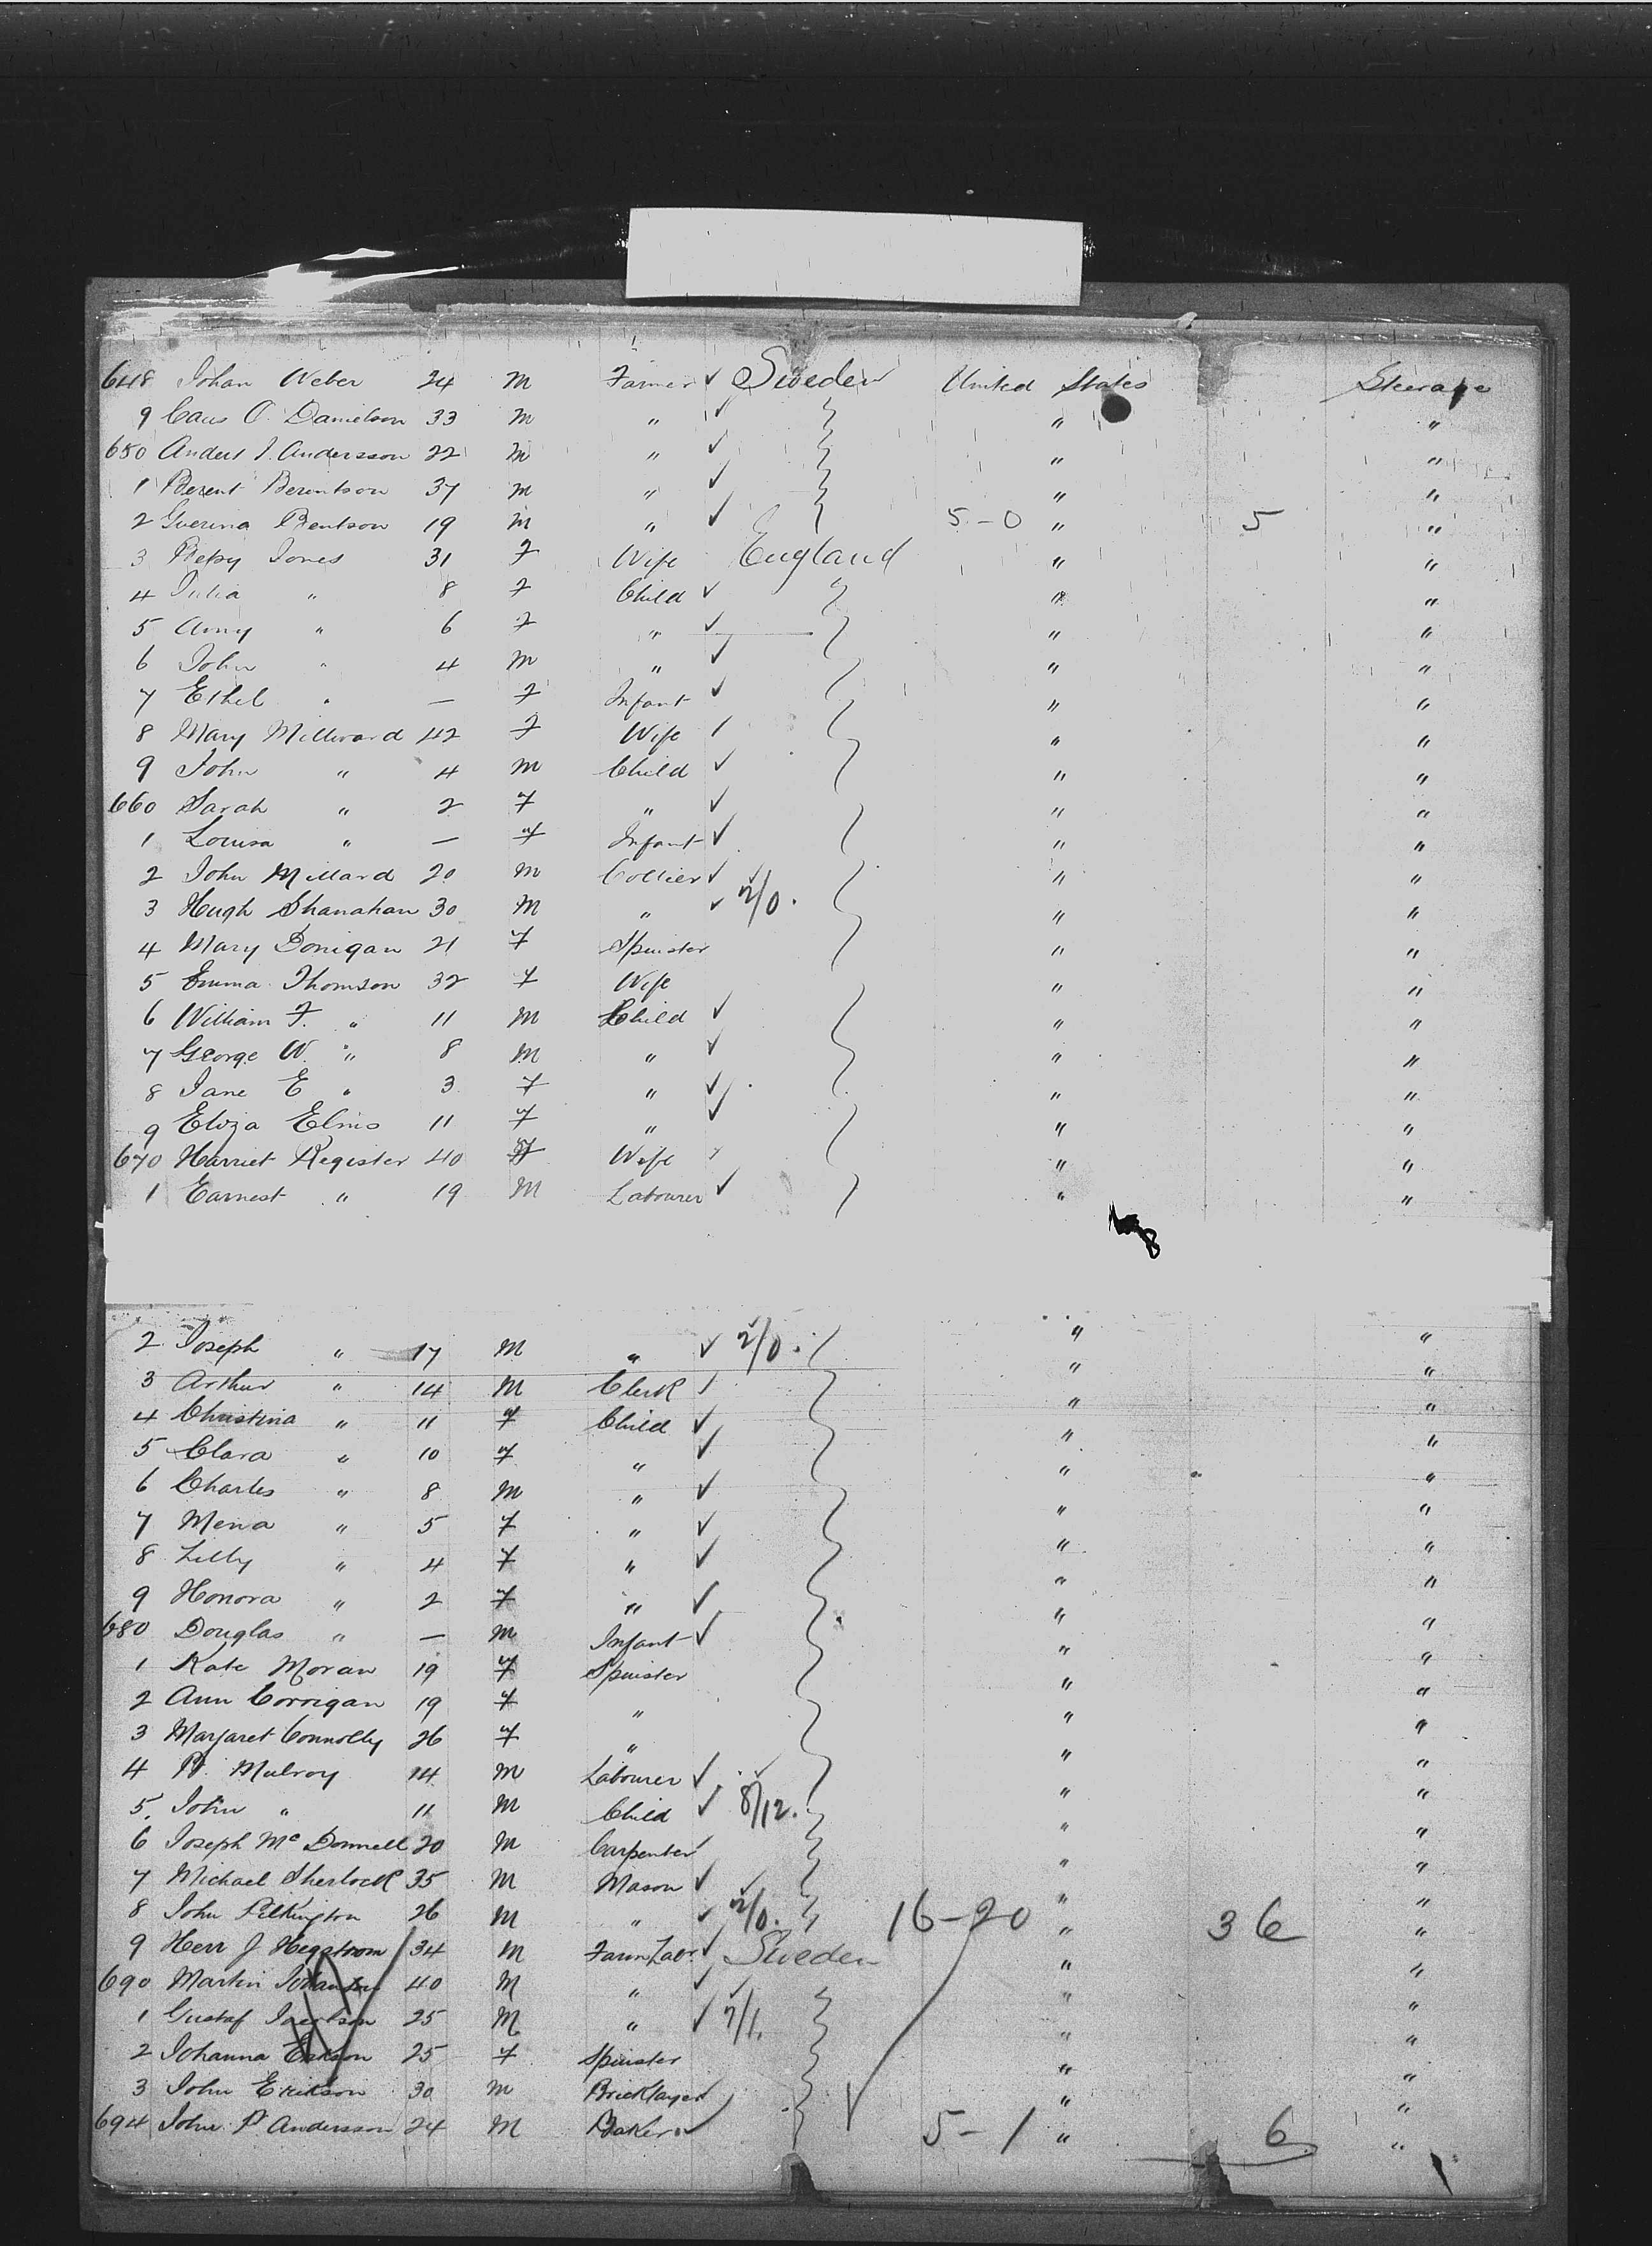 648 Johan Weber 24 M Farmer ✓ Sweden United States Steerage
9 Caus O. Danielson 33 M " ✓ " "
650 Anders J. Andersson 22 M " ✓ " "
1 Berent Berentson 37 M " ✓ " "
2 Bentson 19 M " ✓ 5-0 " 5 "
3 Betsy Jones 31 F Wife England " "
4 Julia " 8 F Child ✓ " " "
5 Amy " 6 F " ✓ " "
6 John " 4 M " ✓ " "
7 Ethel " — F Infant ✓ " "
8 Mary Millward 42 F Wife " "
9 John " 4 M Child ✓ " "
660 Sarah " 2 F " ✓ " "
1 Louisa " — F Infant ✓ " "
2 John Millard 20 M Collier ✓ ✓ " "
3 Hugh Shanahan 30 M " ✓ 2/0. " "
4 Mary Donigan 21 F Spinster " "
5 Emma Thomson 32 F Wife " "
6 William F. " 11 M Child ✓ " "
7 George W. " 8 M " ✓ " "
8 Jane E " 3 F " ✓ " "
9 Eliza Elmis 11 F " ✓ " "
670 Harriet Register 40 F Wife " "
1 Earnest " 19 M Labourer ✓ " "
2 Joseph " 17 M " ✓ 2/0. " "
3 Arthur " 14 M Clerk ✓ " "
4 Christina " 11 F Child ✓ " "
5 Clara " 10 F " ✓ " "
6 Charles " 8 M " ✓ " "
7 Mena " 5 F " ✓ " "
8 Lilly " 4 F " ✓ " "
9 Honora " 2 F " ✓ " "
680 Douglas " — M Infant ✓ " "
1 Kate Moran 19 F Spinster " "
2 Ann Corrigan 19 F " " "
3 Margaret Connolly 26 F " " "
4 P. Mulroy 14 M Labourer ✓ ✓ " "
5. John " 11 M Child ✓ 8/12. " "
6 Joseph McDonnell 20 M Carpenter ✓ " "
7 Michael Sherlock 35 M Mason ✓ ✓ " "
8 John Pilkington 26 M " ✓ 2/0. 16-20 " 36 "
9 Herr J Hegstrom 34 M Farm Labr. ✓ Sweden " "
690 Martin Johanson 40 M " ✓ ✓ " "
1 Gustaf 25 M " ✓ 7/1. " "
2 Johanna 25 F Spinster " "
3 John Erikson 30 M Bricklayer ✓ " "
694 John P Andersson 24 M Baker ✓ 5-1 " 6 "